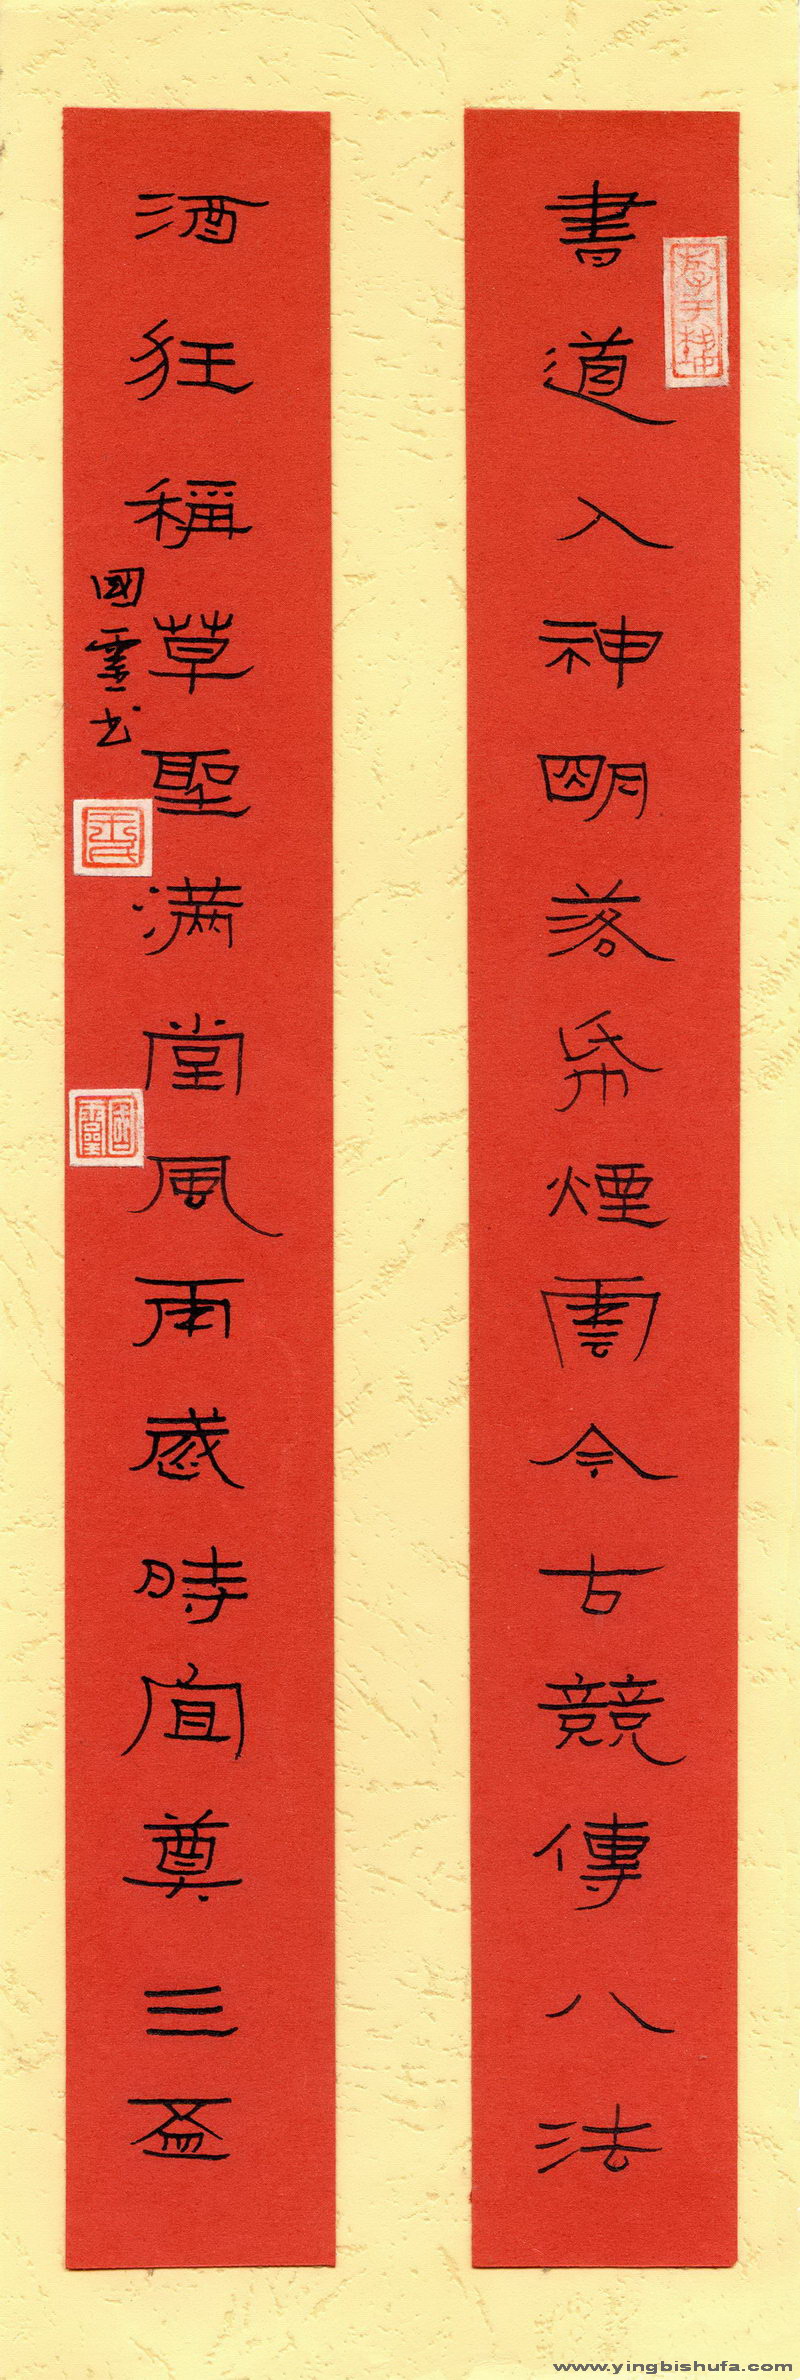 書道入神明落帋煙雲今古競傳八法
酒狂稱草聖满堂風雨感時宜奠三盃
國靈书
www.yingbishufa.com